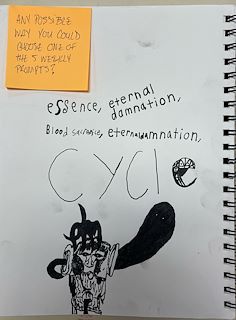 ANY POSSIBLE
WAY YOU COULD
CHOOSE ONE OF
THE 5 WEEKLY
PROMPTS?
essence, eternal
damnation,
Blood sacrifice, eternal damnation,
CYCle